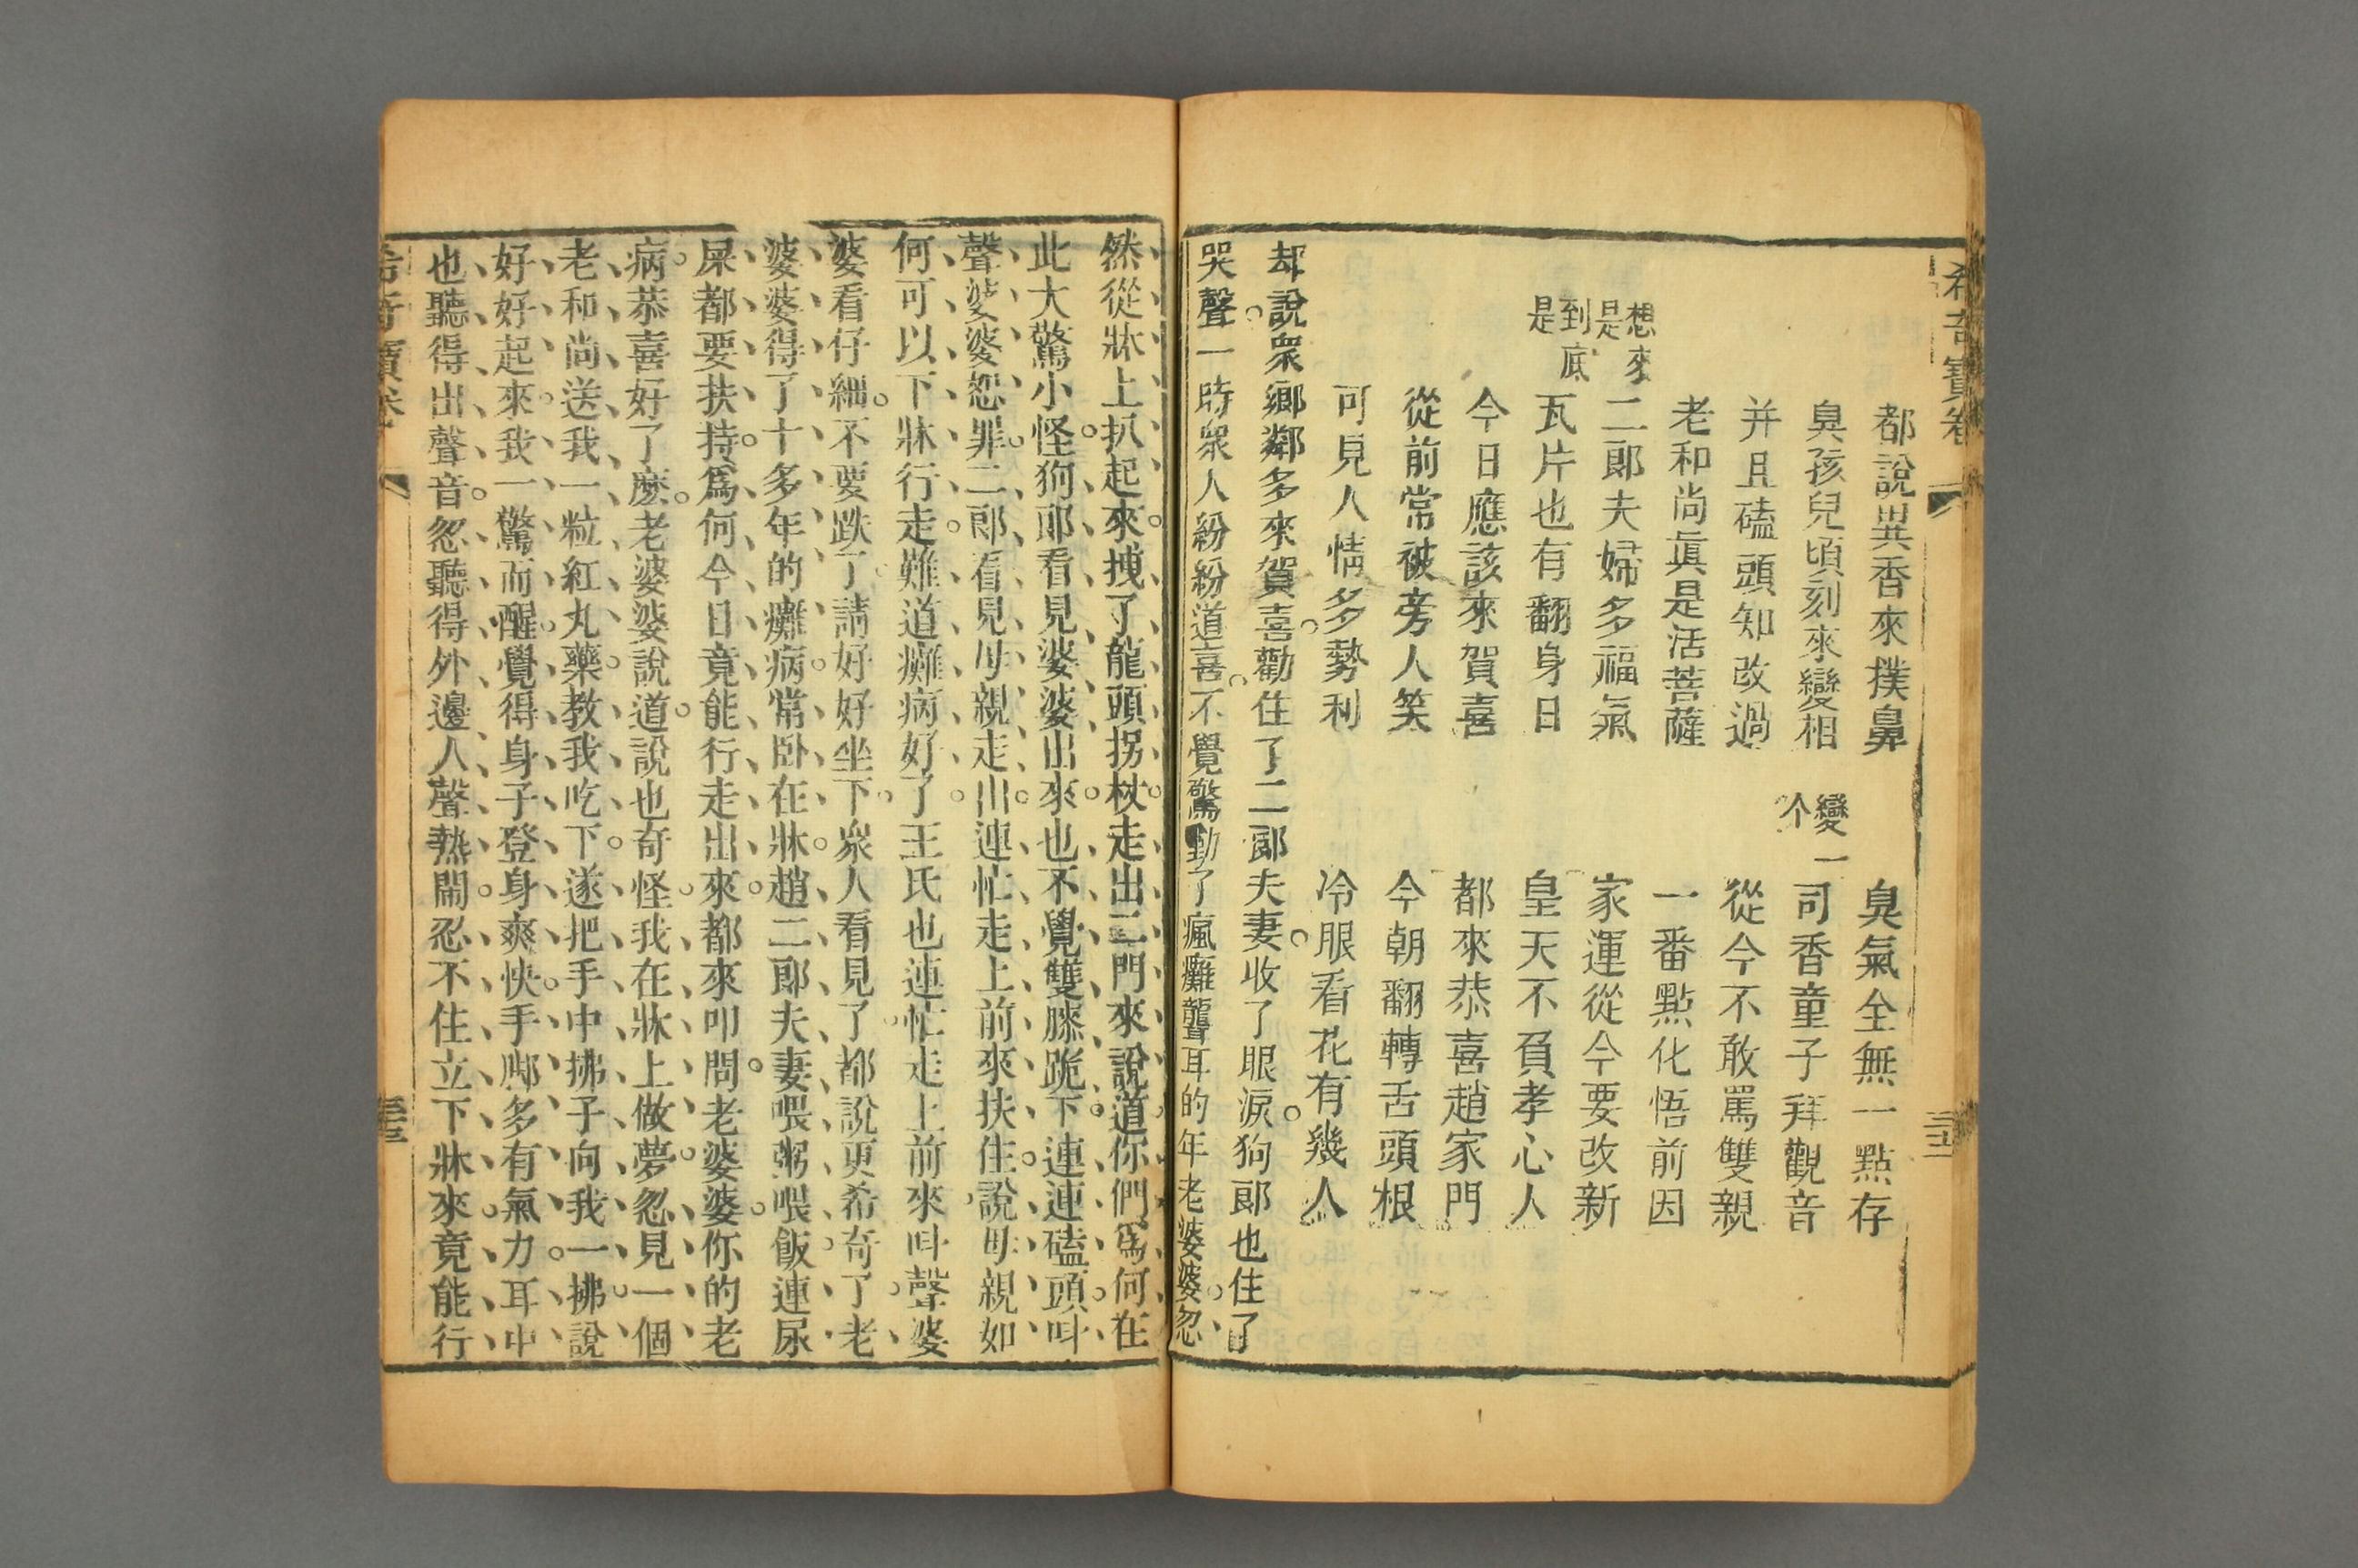 希奇寶卷
都說異香來撲鼻 臭氣全無一點存
臭孩兒頃刻來變相 變一个司香童子拜觀音
并且磕頭知改過 從今不敢罵雙親
老和尚眞是活菩薩 一番點化悟前因
想來是二郎夫婦多福氣 家運從今要改新
到底是瓦片也有翻身日 皇天不負孝心人
今日應該來賀喜 都來恭喜趙家門
從前常被旁人笑 今朝翻轉舌頭根
可見人情多勢利 冷眼看花有幾人
却說衆鄉鄰多來賀喜。勸住了二郎夫妻。收了眼淚。狗郎也住了
哭聲。一時衆人紛紛道喜。不覺驚動了瘋癱聾耳的年老婆婆。忽
然從牀上扒起來。拽了龍頭拐杖。走出二門來說道。你們爲何在
此大驚小怪。狗郎看見婆婆出來。也不覺雙膝跪下。連連磕頭。呌
聲婆婆恕罪。二郎看見母親走出。連忙走上前來扶住。說母親如
何可以下牀行走。難道癱病好了。王氏也連忙走上前來。呌聲婆
婆看仔細。不要跌了。請好好坐下。衆人看見了。都說更希奇了。老
婆婆得了十多年的癱病。常卧在牀。趙二郎夫妻喂粥喂飯。連尿
屎都要扶持。爲何今日竟能行走出來。都來叩問。老婆婆。你的老
病恭喜好了麽。老婆婆說道。說也奇怪。我在牀上做夢。忽見一個
老和尚送我一粒紅丸藥。教我吃下。遂把手中拂子向我一拂。說
好好起來。我一驚而醒。覺得身子登身爽快。手脚多有氣力。耳中
也聽得出聲音。忽聽得外邊人聲熱鬧。忍不住立下牀來。竟能行
希奇寶卷